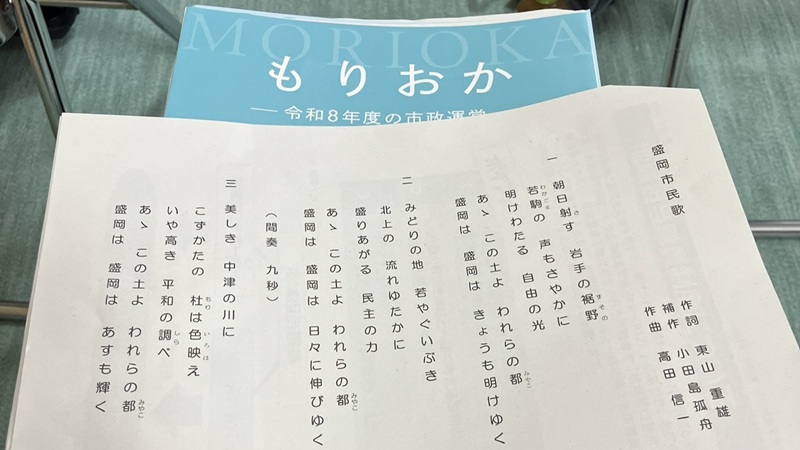 MORIOKA
もりおか
―令和8年度の市政運営
盛岡市民歌
作詞 東山 重雄
補作 小田島孤舟
作曲 高田 信一
一 朝日射す 岩手の裾野
若駒の 声もさやかに
明けわたる 自由の光
あゝ この土よ われらの都
盛岡は 盛岡は きょうも明けゆく
二 みどりの地 若やぐいぶき
北上の 流れゆたかに
盛りあがる 民主の力
あゝ この土よ われらの都
盛岡は 盛岡は 日々に伸びゆく
(間奏 九秒)
三 美しき 中津の川に
こずかたの 杜は色映え
いや高き 平和の調べ
あゝ この土よ われらの都
盛岡は 盛岡は あすも輝く